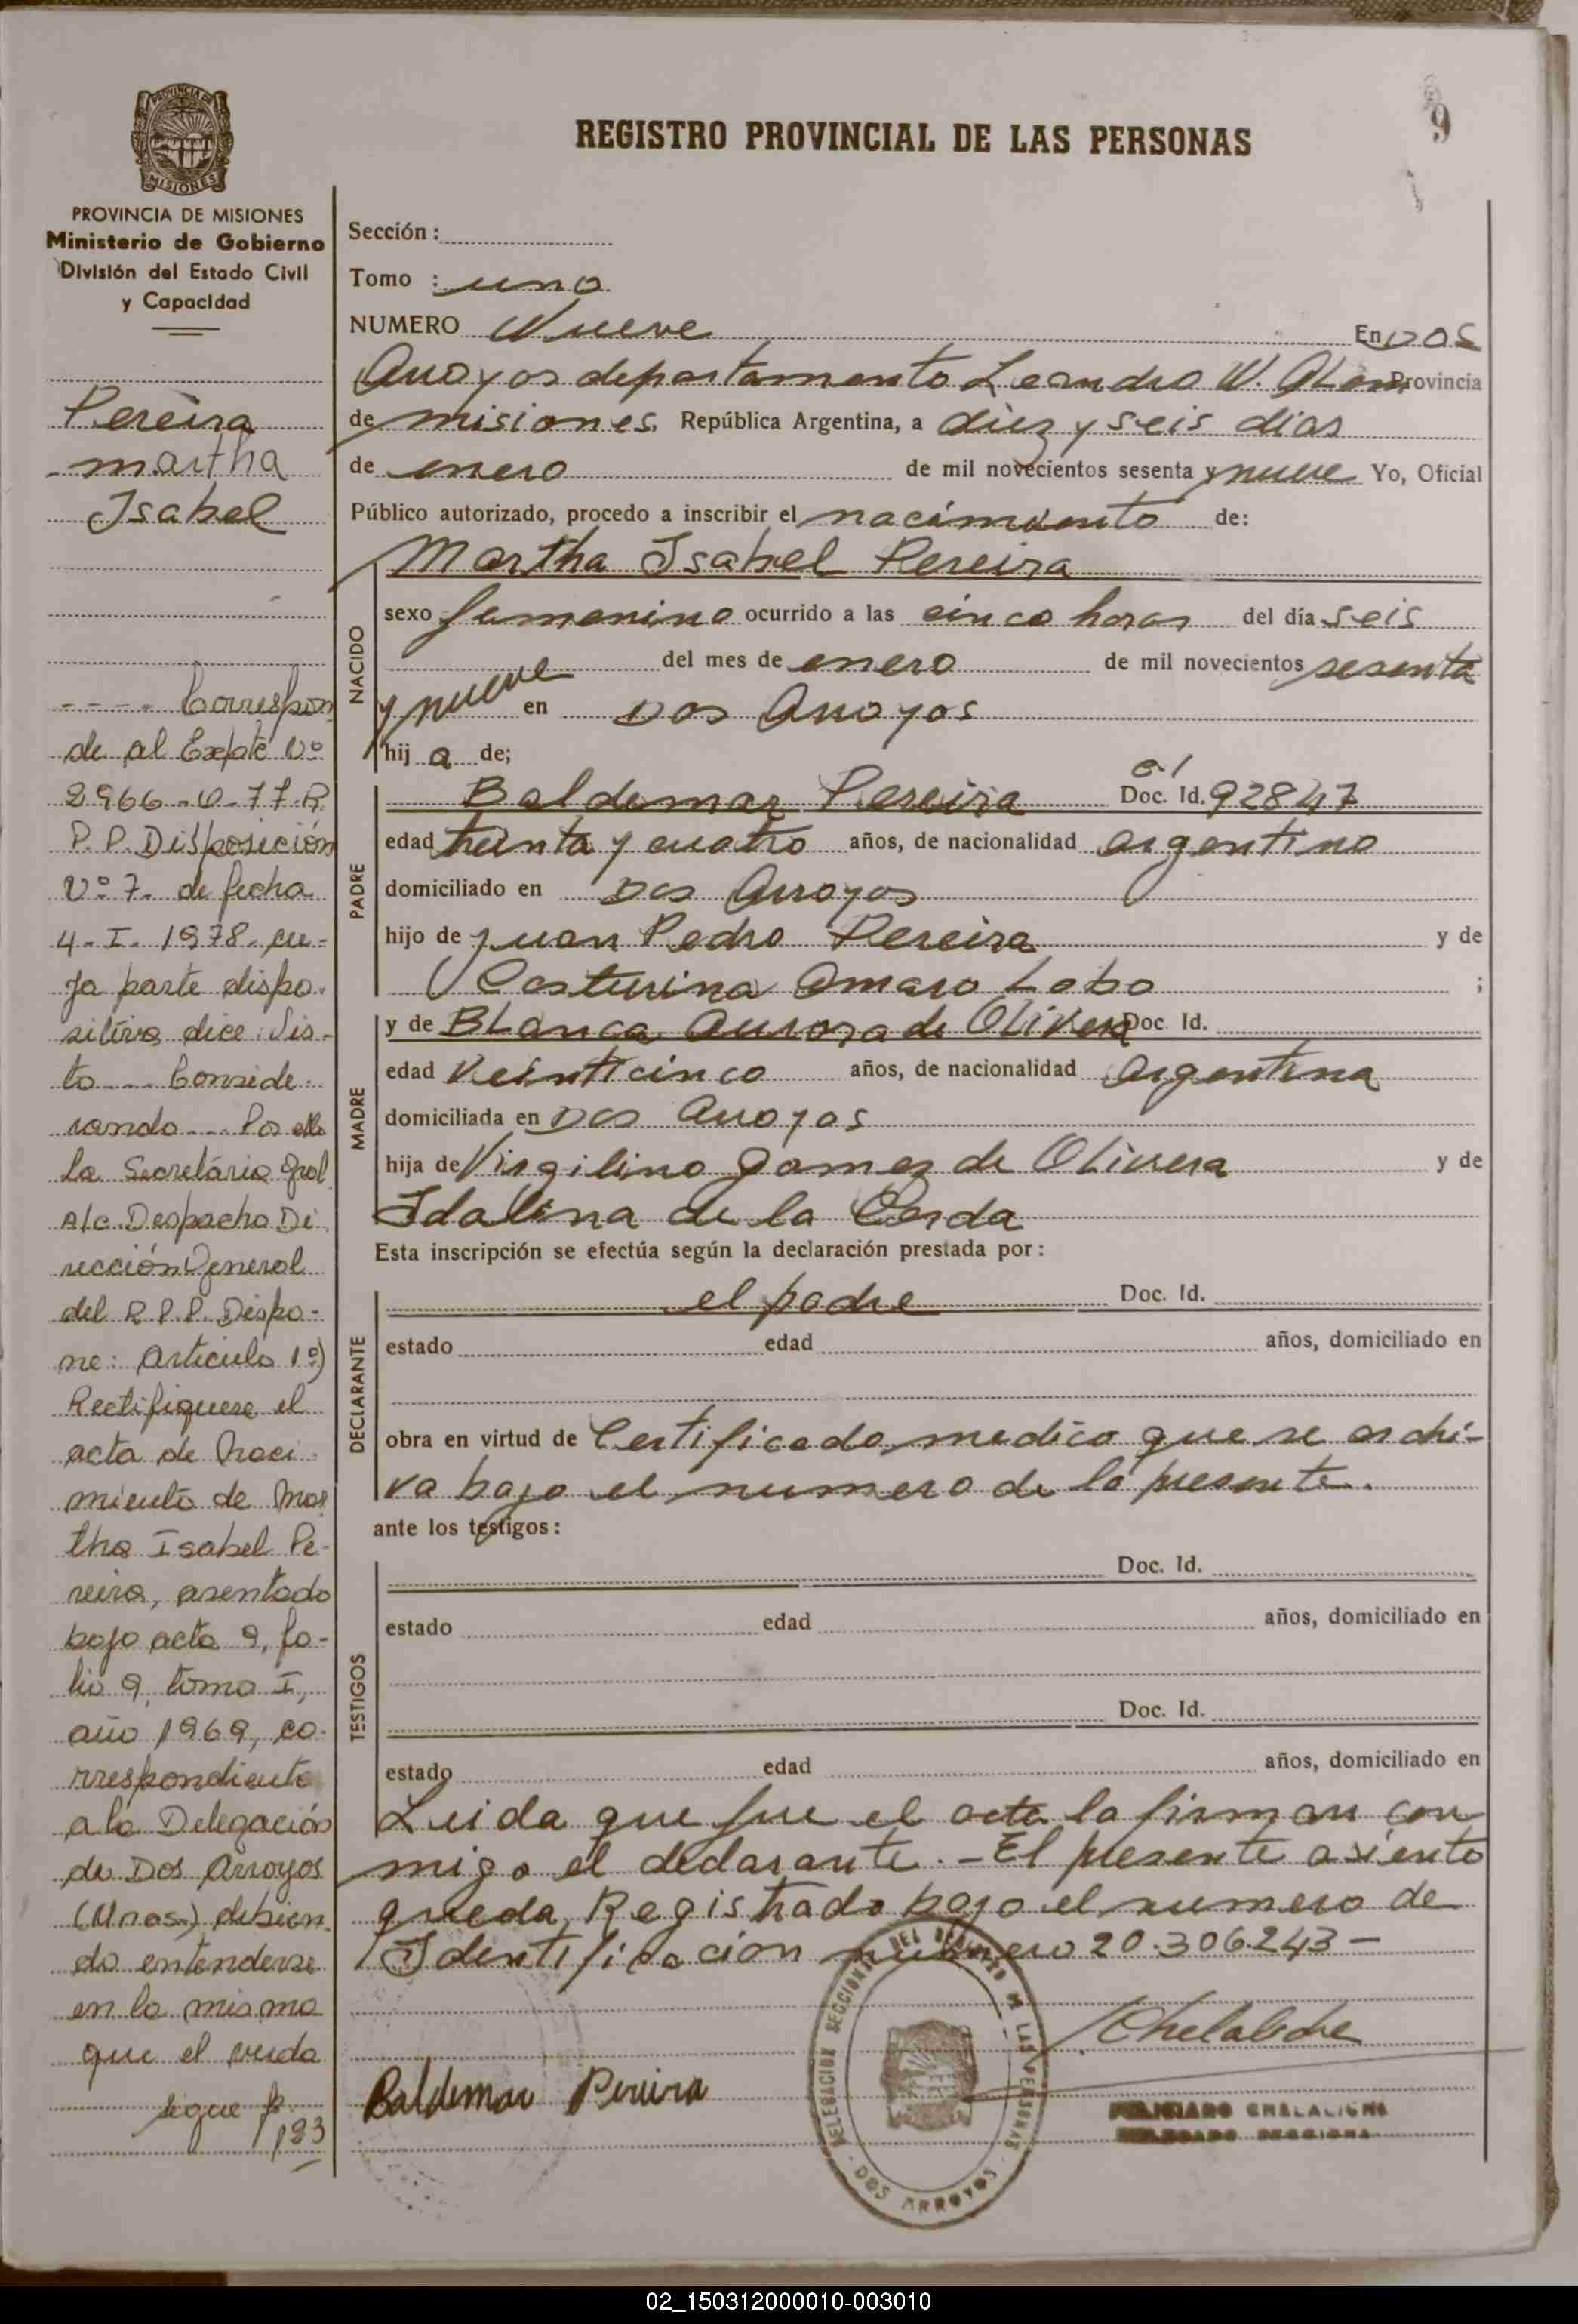 9
REGISTRO PROVINCIAL DE LAS PERSONAS
PROVINCIA DE
MISIONES
PROVINCIA DE MISIONES
Ministerio de Gobierno
División del Estado Civil
y Capacidad
Pereira
martha
Isabel
---- Correspon
de al Expte Nº
2966-0-77-R.
P.P. Disposición
Nº 7. de fecha
4-I-1978. cu-
ya parte dispo-
sitiva dice: Vis-
to --- Conside-
rando --- Por ello
La Secretária Gral
a/c Despacho Di
rección General
del R.P.P. Dispo-
ne: Artículo 1º)
Rectifiquese el
acta de Naci-
miento de Mar
tha Isabel Pe-
reira, asentado
bajo acta 9, fo-
lio 9, tomo I,
año 1969, co-
rrespondiente
a la Delegación
de Dos Arroyos
(Mnes.) debien-
do entenderse
en la misma
que el verda
sigue f.
193
Sección :
Tomo : uno
NUMERO Nueve En DOS
Arroyos departamento Leandro N. Alem Provincia
de misiones. República Argentina, a diez y seis dias
de enero de mil novecientos sesenta y nueve Yo, Oficial
Público autorizado, procedo a inscribir el nacimiento de:
Martha Isabel Pereira
NACIDO
sexo femenino ocurrido a las cinco horas del día seis
del mes de enero de mil novecientos sesenta
y nueve en Dos Arroyos
hij a de;
PADRE
Baldemar Pereira Doc. Id. 92847
edad treinta y cuatro años, de nacionalidad argentino
domiciliado en Dos Arroyos
hijo de Juan Pedro Pereira y de
Casturina Amaro Lobo ;
MADRE
y de Blanca Aurora de Olivera Doc. Id.
edad Veinticinco años, de nacionalidad argentina
domiciliada en Dos Arroyos
hija de Virgilino Gomez de Olivera y de
Idalina de la Cerda
Esta inscripción se efectúa según la declaración prestada por:
DECLARANTE
el padre Doc. Id.
estado edad años, domiciliado en
obra en virtud de Certificado medico que se archi-
va bajo el numero de la presente.
ante los testigos:
TESTIGOS
Doc. Id.
estado edad años, domiciliado en
Doc. Id.
estado edad años, domiciliado en
Leida que fue el acta la firman con
migo el declarante.-El presente asiento
queda Registrado bajo el numero de
Identificación numero 20.306.243-
Baldemar Pereira
DELEGACION SECCIONAL DEL REGISTRO DE LAS PERSONAS
DOS ARROYOS
02_150312000010-003010